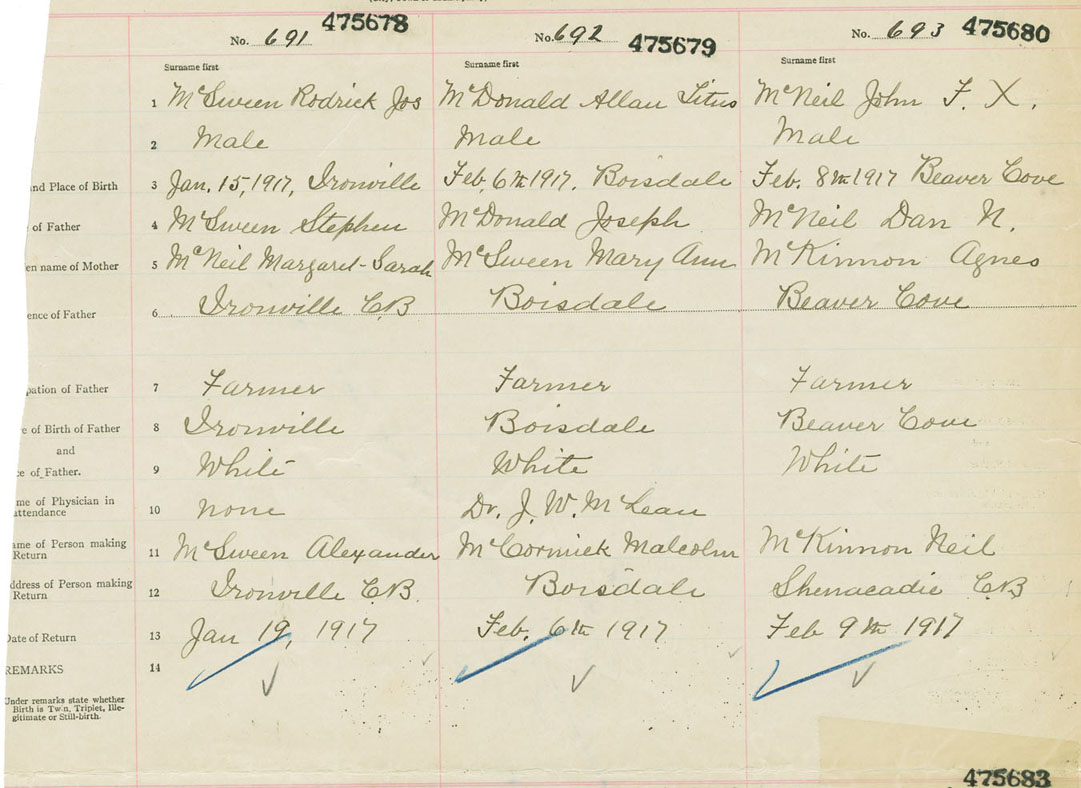 No. 691 475678 No. 692 475679 No. 693 475680
Surname first Surname first Surname first
1 McSween Rodrick Jos McDonald Allan Titus McNeil John F. X.
2 Male Male Male
and Place of Birth 3 Jan. 15, 1917, Ironville Feb, 6th 1917, Boisdale Feb. 8th 1917 Beaver Cove
of Father 4 McSween Stephen McDonald Joseph McNeil Dan N.
en name of Mother 5 McNeil Margaret-Sarah McSween Mary Ann McKinnon Agnes
ence of Father 6 Ironville C.B Boisdale Beaver Cove
pation of Father 7 Farmer Farmer Farmer
e of Birth of Father 8 Ironville Boisdale Beaver Cove
and
ce of Father. 9 White White White
me of Physician in
attendance 10 none Dr. J. W. McLean
ame of Person making
Return 11 McSween Alexander McCormick Malcolm McKinnon Neil
ddress of Person making
Return 12 Ironville C.B. Boisdale Shenacadie C.B
Date of Return 13 Jan 19, 1917 Feb. 6th 1917 Feb 9th 1917
REMARKS 14
Under remarks state whether
Birth is Twin, Triplet, Ille-
gitimate or Still-birth.
475683